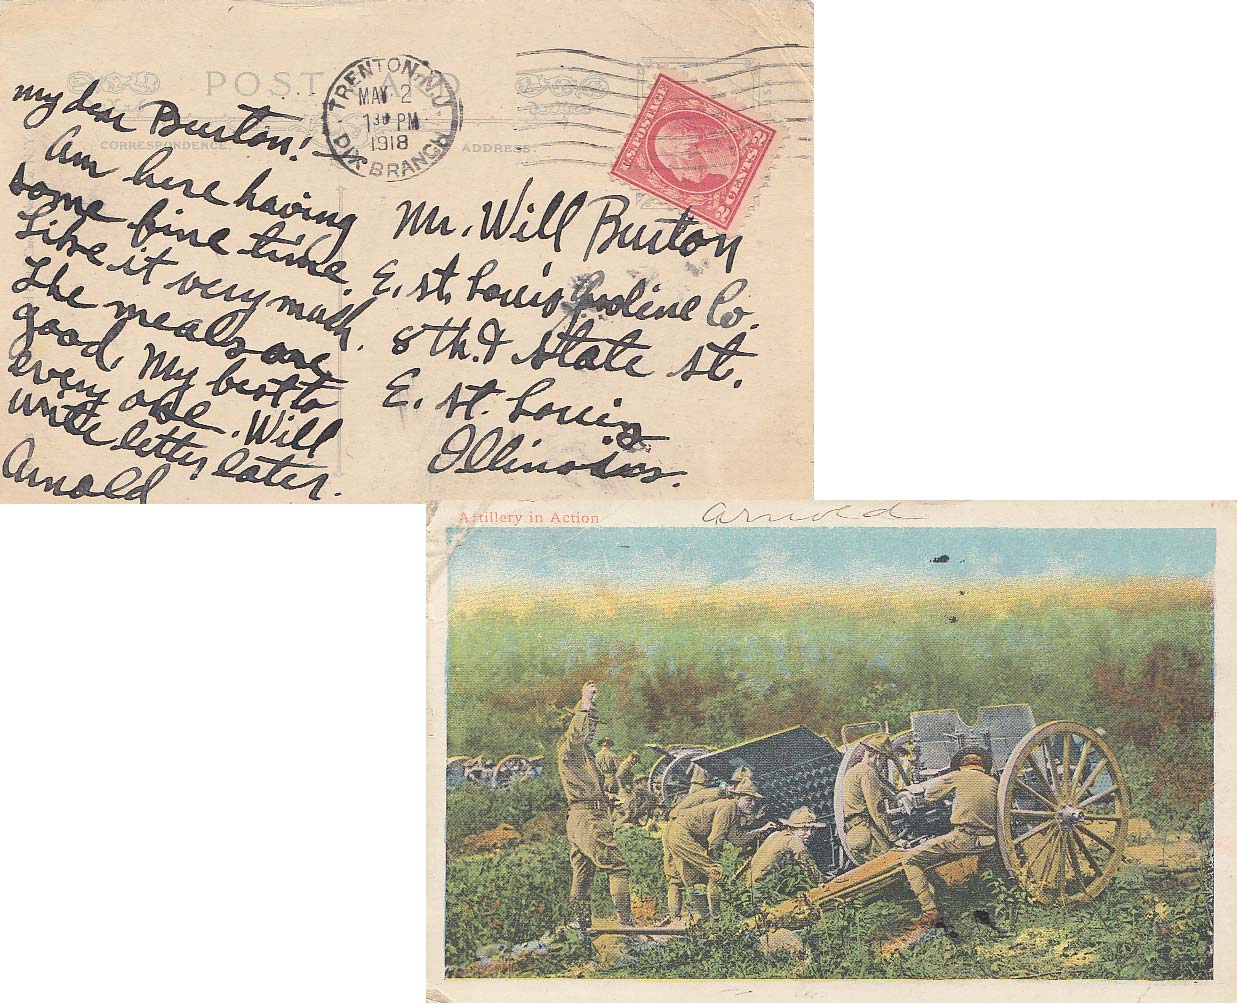 POST CARD
CORRESPONDENCE.
ADDRESS.
TRENTON, N.J.
MAY 2
1 30 PM
1918
DIX BRANCH
U.S. POSTAGE
2 CENTS 2
My dear Burton! -
Am here having
some fine time.
Like it very much.
The meals are
good. My best to
every one. Will
write letter later.
Arnold
Mr. Will Burton
E. St. Louis Co.
8th. & State St.
E. St. Louis
Illinois.
Artillery in Action
Arnold